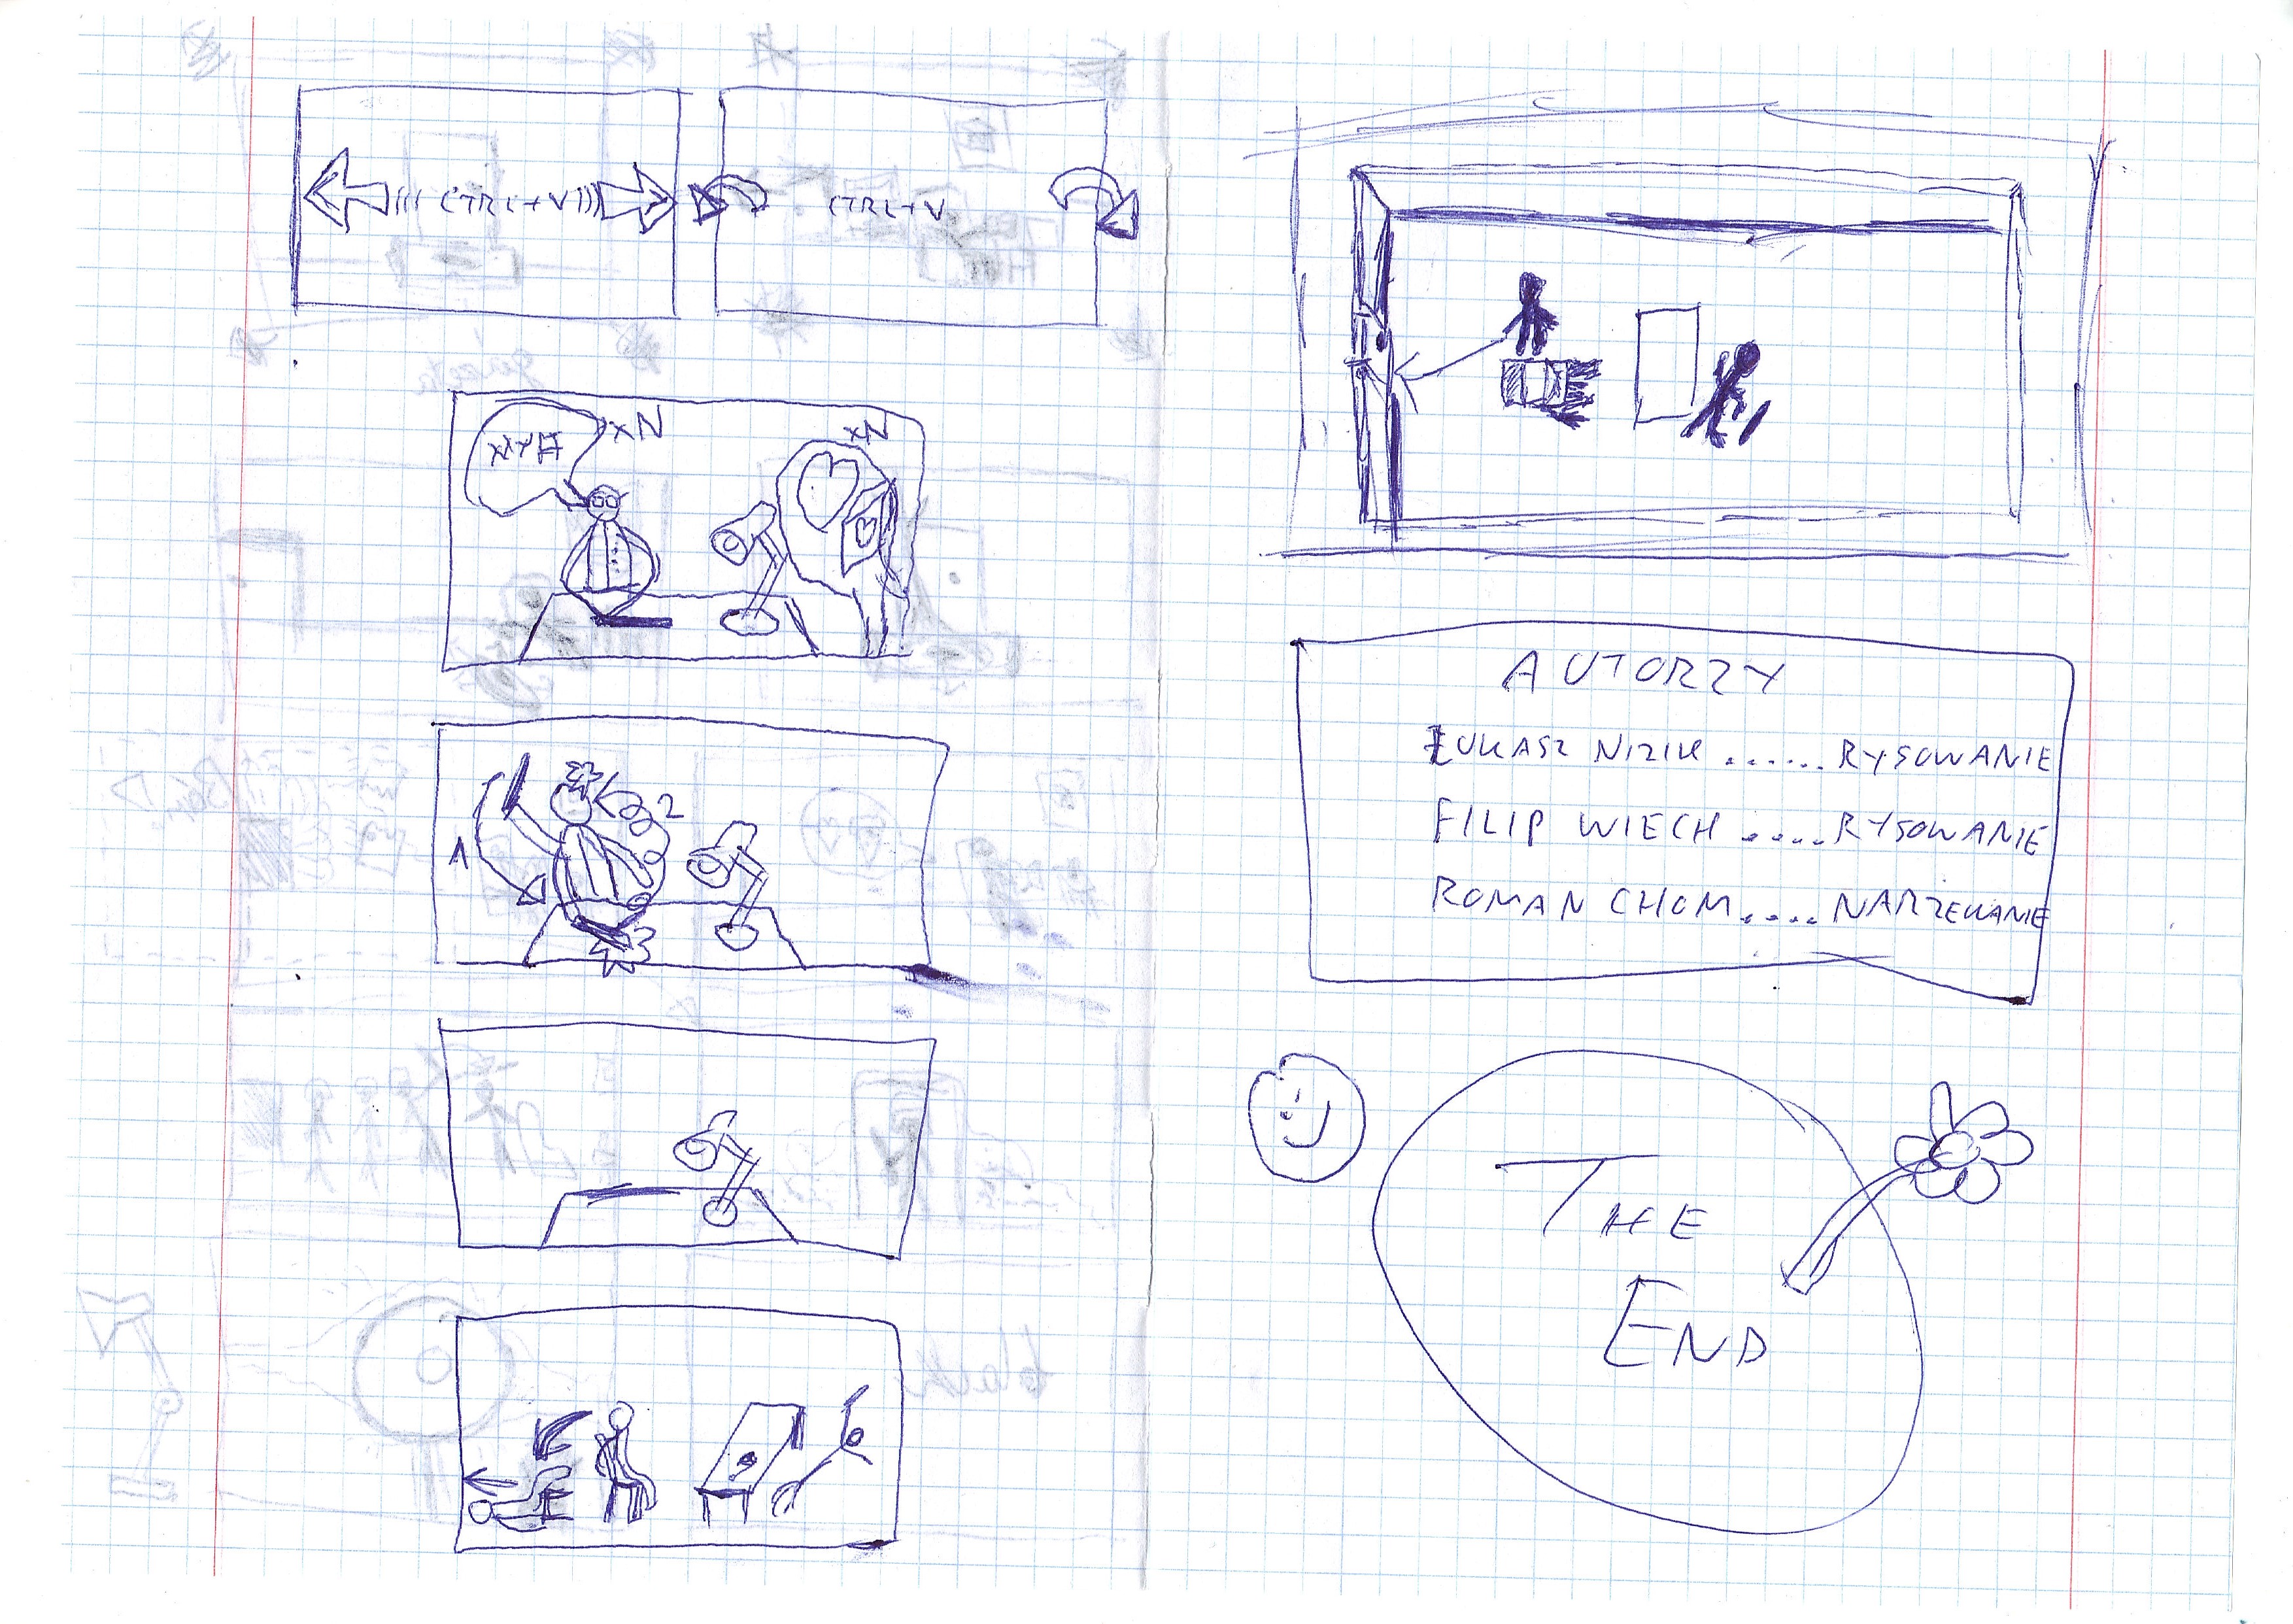 CTRL+V
CTRL+V
xN
xN
1
2
AUTORZY
ŁUKASZ NIZIK ...... RYSOWANIE
FILIP WIECH ..... RYSOWANIE
ROMAN CHOM ..... NARZEKANIE
THE
END